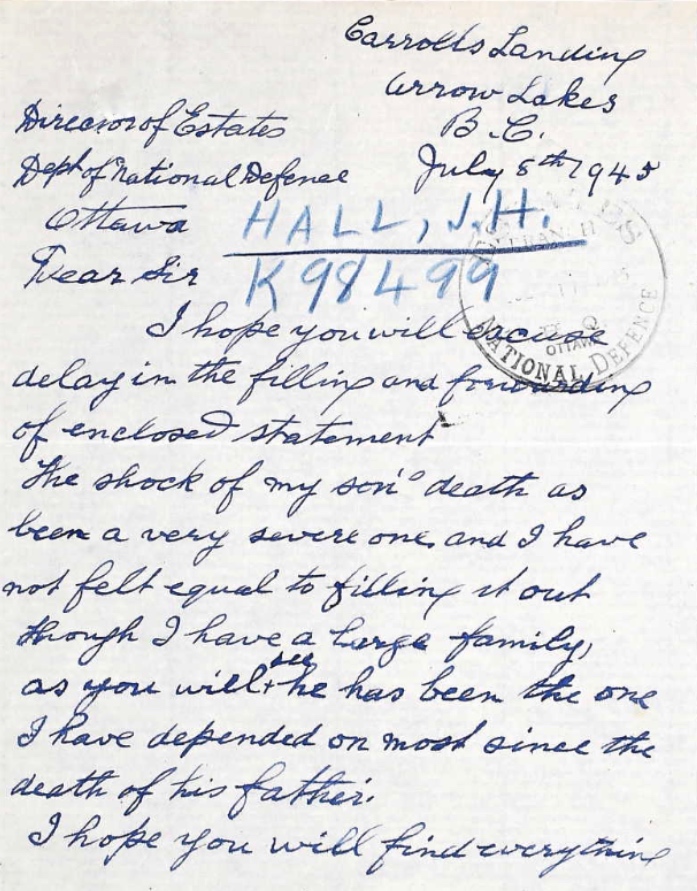 Carrolls Landing
Arrow Lakes
B.C.
July 8th 1945
Director of Estates
Dept of National Defence
Ottawa
HALL, J.H.
K98499
Dear Sir
BRANCH
OTTAWA
NATIONAL DEFENCE
I hope you will excuse
delay in the filling and forwarding
of enclosed statement
The shock of my son's death as
been a very severe one, and I have
not felt equal to filling it out
though I have a large family,
as you will see he has been the one
I have depended on most since the
death of his father.
I hope you will find everything